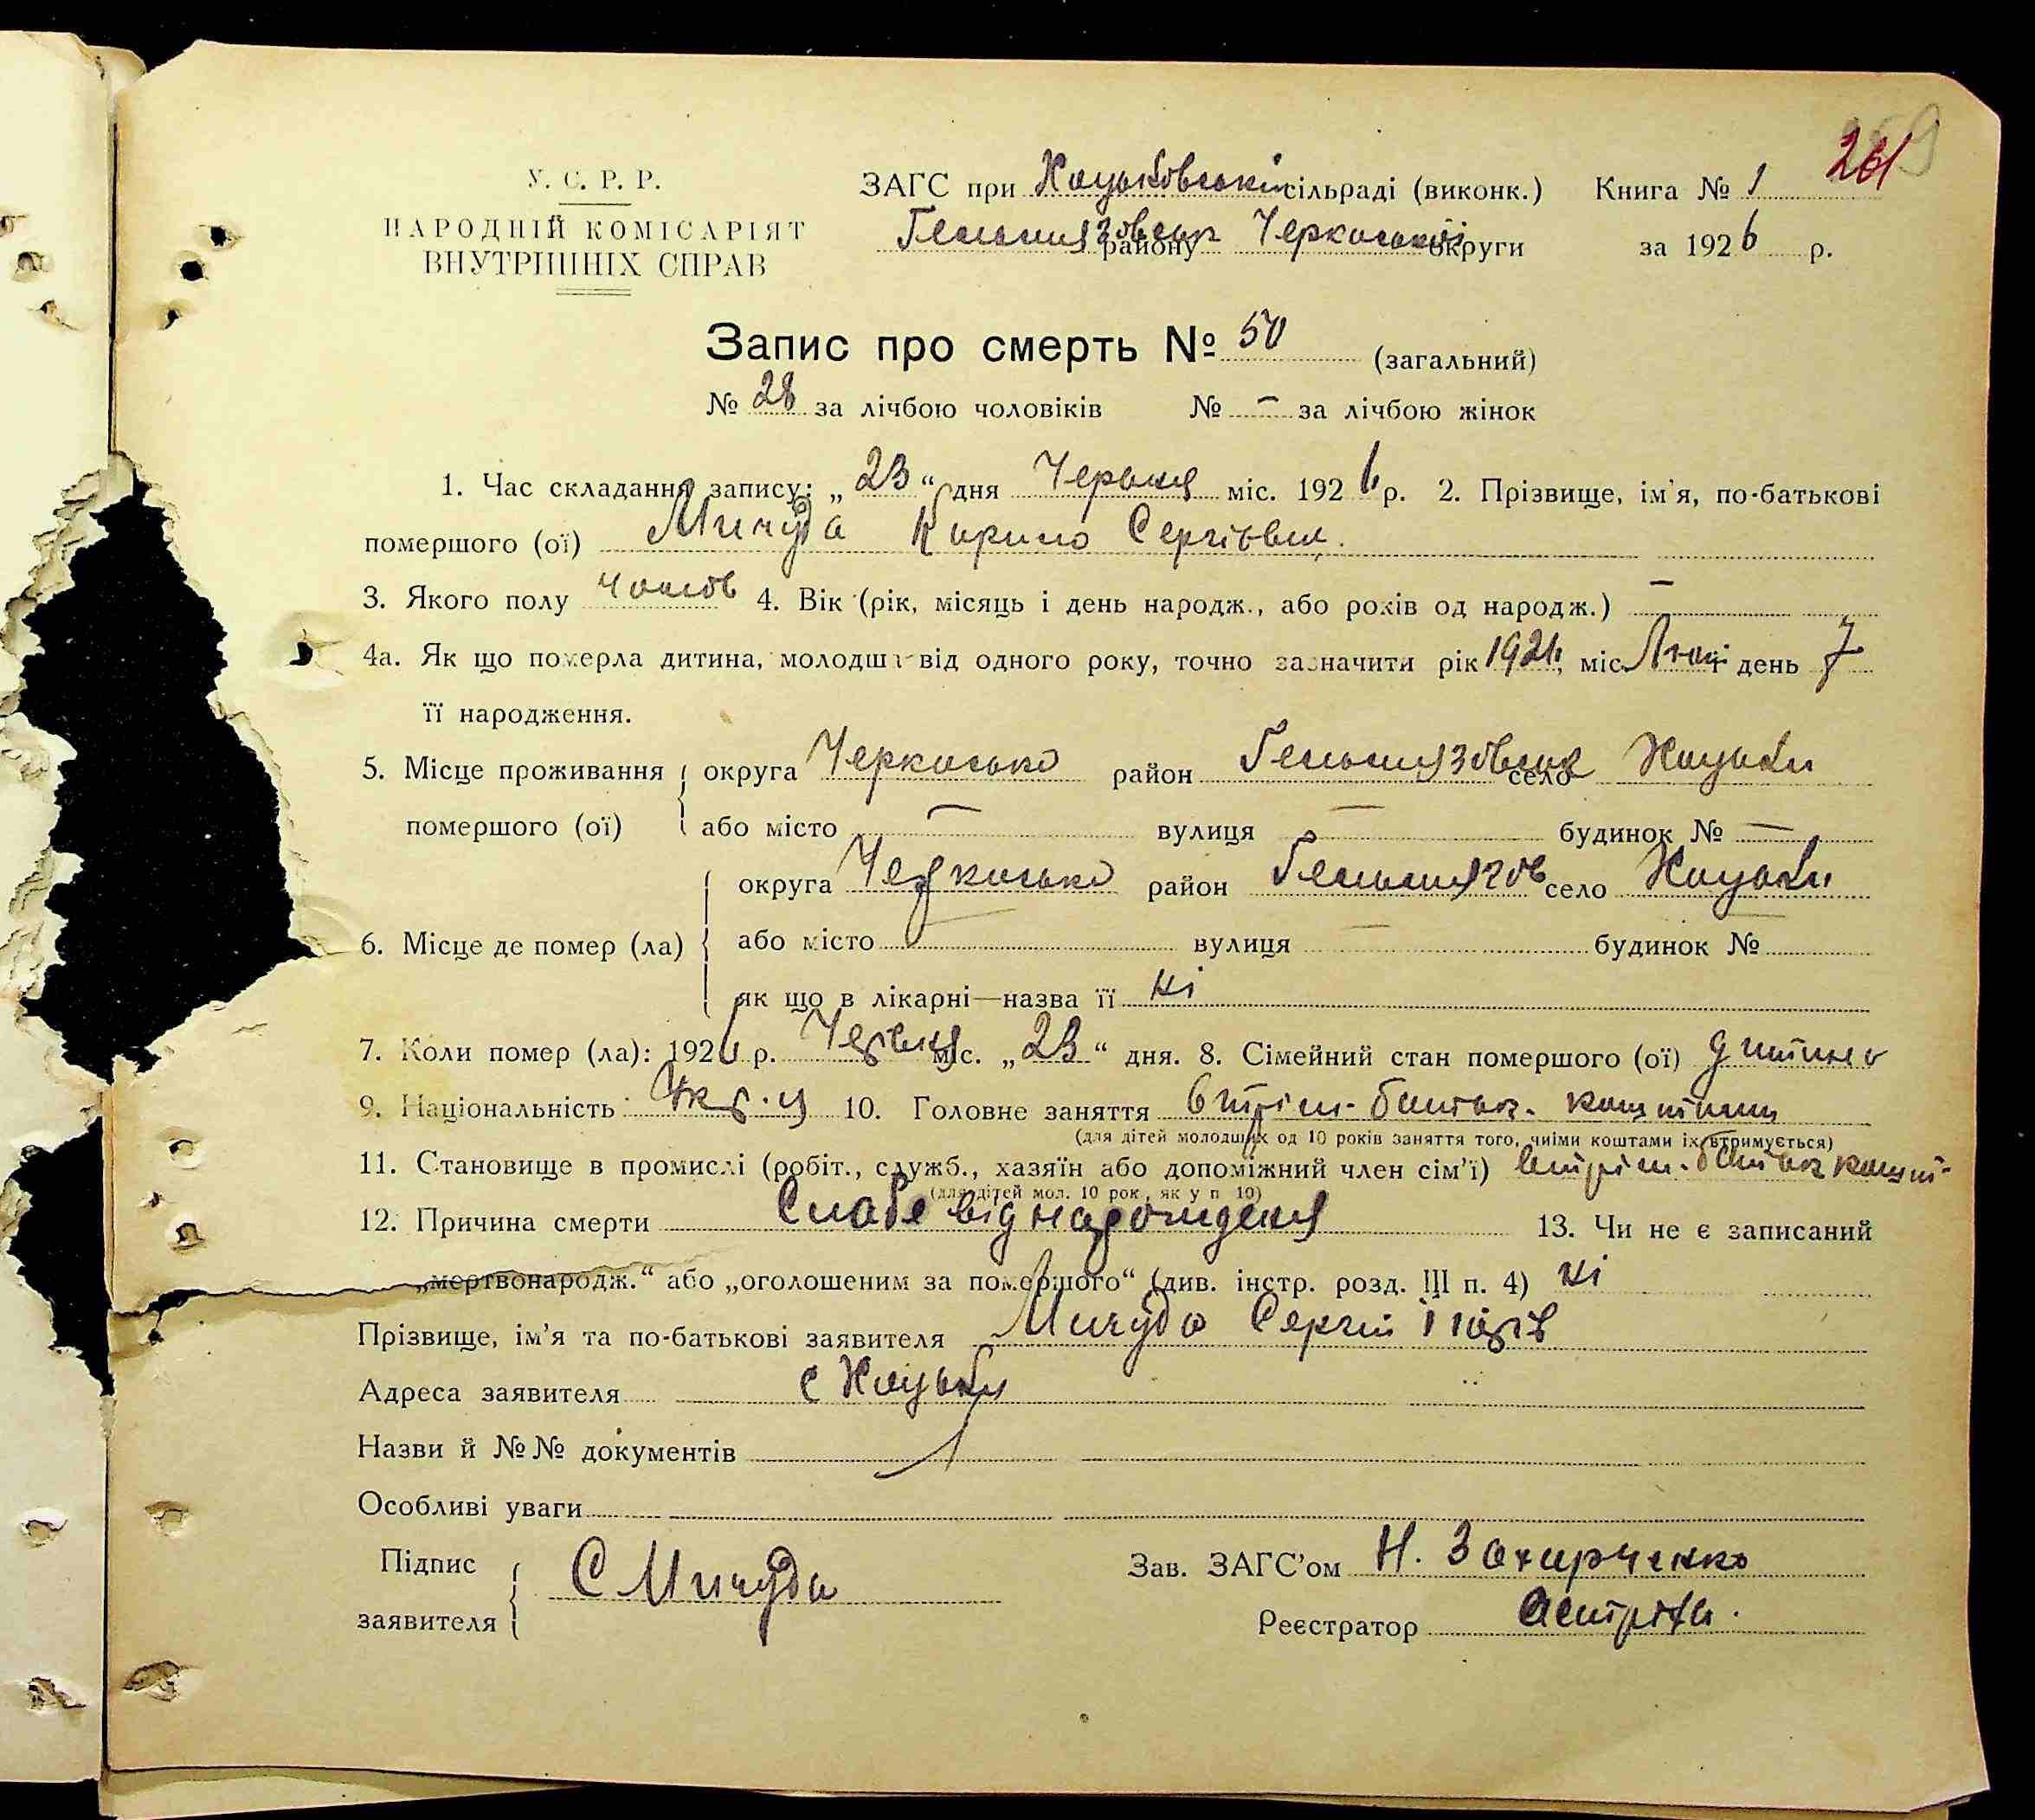 261
У. С. Р. Р.
НАРОДНІЙ КОМІСАРІЯТ
ВНУТРІШНІХ СПРАВ
ЗАГС при Коцьківські сільраді (виконк.) Книга № 1
Гельмязівськ району Черкаській округи за 1926 р.
Запис про смерть № 50 (загальний)
№ 28 за лічбою чоловіків № – за лічбою жінок
1. Час складання запису: „23“ дня Червня міс. 1926 р. 2. Прізвище, ім'я, по-батькові
помершого (ої) Мигуда Кирило Сергієвич.
3. Якого полу чолов 4. Вік (рік, місяць і день народж., або років од народж.) –
4а. Як що померла дитина, молодша від одного року, точно зазначити рік 1926, міс. Лютий день 7
її народження.
5. Місце проживання округа Черкасько район Гельмязовськ село Коцьки
помершого (ої) або місто – вулиця – будинок № –
округа Черкасько район Гельмязов село Коцьки
6. Місце де помер (ла) або місто вулиця – будинок №
як що в лікарні—назва її ні
7. Коли помер (ла): 1926 р. Червня міс. „23“ дня. 8. Сімейний стан помершого (ої) дитина
9. Національність Укр-ц 10. Головне заняття втрім. батьк. коштами
(для дітей молодших од 10 років заняття того, чиїми коштами їх втримується)
11. Становище в промислі (робіт., служб., хазяїн або допоміжний член сім'ї) втрім. батьк кошт-
(для дітей мол. 10 рок., як у п 10)
12. Причина смерти Слабе від народження 13. Чи не є записаний
„мертвонародж.“ або „оголошеним за помершого“ (див. інстр. розд. III п. 4) ні
Прізвище, ім'я та по-батькові заявителя Мигуда Сергій
Адреса заявителя с Коцьки
Назви й №№ документів
Особливі уваги
Підпис
заявителя С Мигуда
Зав. ЗАГС'ом Н. Захарченко
Реєстратор